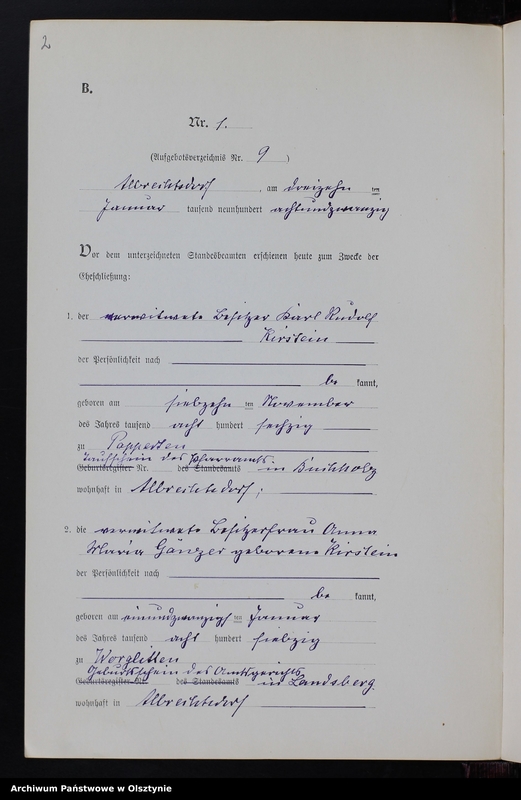 2
B.
Nr. 1.
(Aufgebotsverzeichnis Nr. 9)
Albrechtsdorf, am dreizehn ten
Januar tausend neunhundert achtundzwanzig
Vor dem unterzeichneten Standesbeamten erschienen heute zum Zwecke der
Eheschließung:
1. der verwitwete Besitzer Karl Rudolf
Kirstein
der Persönlichkeit nach
be kannt,
geboren am siebzehn ten November
des Jahres tausend acht hundert sechzig
zu Papperten
Taufschein des Pfarramts
Geburtsregister Nr. des Standesamts in Buchholz
wohnhaft in Albrechtsdorf;
2. die verwitwete Besitzerfrau Anna
Maria Gänger geborene Kirstein
der Persönlichkeit nach
be kannt,
geboren am einundzwanzigs ten Januar
des Jahres tausend acht hundert siebzig
zu Worglitten
Geburtsschein des Amtsgerichts
Geburtsregister Nr. des Standesamts in Landsberg.
wohnhaft in Albrechtsdorf
Archiwum Państwowe w Olsztynie